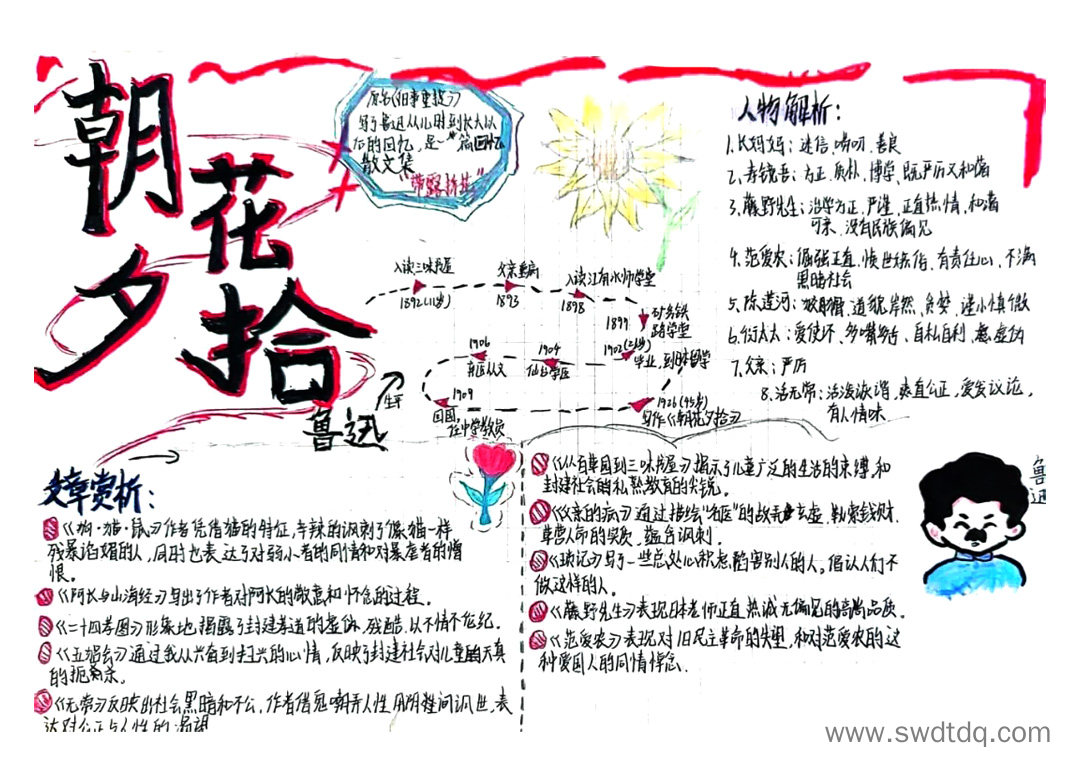 朝花夕拾
鲁迅
原名《旧事重提》
写了鲁迅从儿时到长大以
后的回忆,是一篇回忆
散文集
"带露折花"
入读三味书屋
1892(11岁)
父亲重病
1893
入读江南水师学堂
1898
1899
矿务铁
路学堂
1902(21岁)
毕业,到日本留学
1904
仙台学医
1906
弃医从文
1909
回国
任中学教员
1926(45岁)
写作《朝花夕拾》
生平
人物解析:
1.长妈妈:迷信、唠叨、善良
2.寿镜吾:方正、质朴、博学、既严厉又和蔼
3.藤野先生:治学方正、严谨、正直热情、和蔼
可亲、没有民族偏见
4.范爱农:倔强正直、愤世嫉俗、有责任心、不满
黑暗社会
5.陈莲河:道貌岸然、贪婪、谨小慎微
6.衍太太:爱使坏、多嘴多舌、自私自利、虚伪
7.父亲:严厉
8.活无常:活泼诙谐、爽直公正、爱发议论,
有人情味
文章赏析:
《狗·猫·鼠》作者凭借猫的特征,辛辣的讽刺了像猫一样
残暴谄媚的人,同时也表达了对弱小者的同情和对暴虐者的憎
恨。
《阿长与山海经》写出了作者对阿长的敬意和怀念的过程。
《二十四孝图》形象地揭露了封建孝道的虚伪、残酷,以不情不伦纪。
《五猖会》通过我从兴奋到扫兴的心情,反映了封建社会对儿童的天真
的扼杀。
《无常》反映出社会黑暗和不公,作者借鬼嘲弄人性,用阴间讽世,表
达对公正与人性的渴望
《从百草园到三味书屋》揭示了儿童广泛的生活的束缚,和
封建社会的私塾教育的尖锐。
《父亲的病》通过描绘"名医"的故弄玄虚、勒索钱财、
草营人命的实质,蕴含讽刺。
《琐记》写了一些总处心积虑陷害别人的人。倡认人们不
做这样的人。
《藤野先生》表现日本老师正直热诚无偏见的高尚品质。
《范爱农》表现对旧民主革命的失望,和对范爱农的这
种爱国人的同情悼念.
鲁
迅
www.swdtdq.com